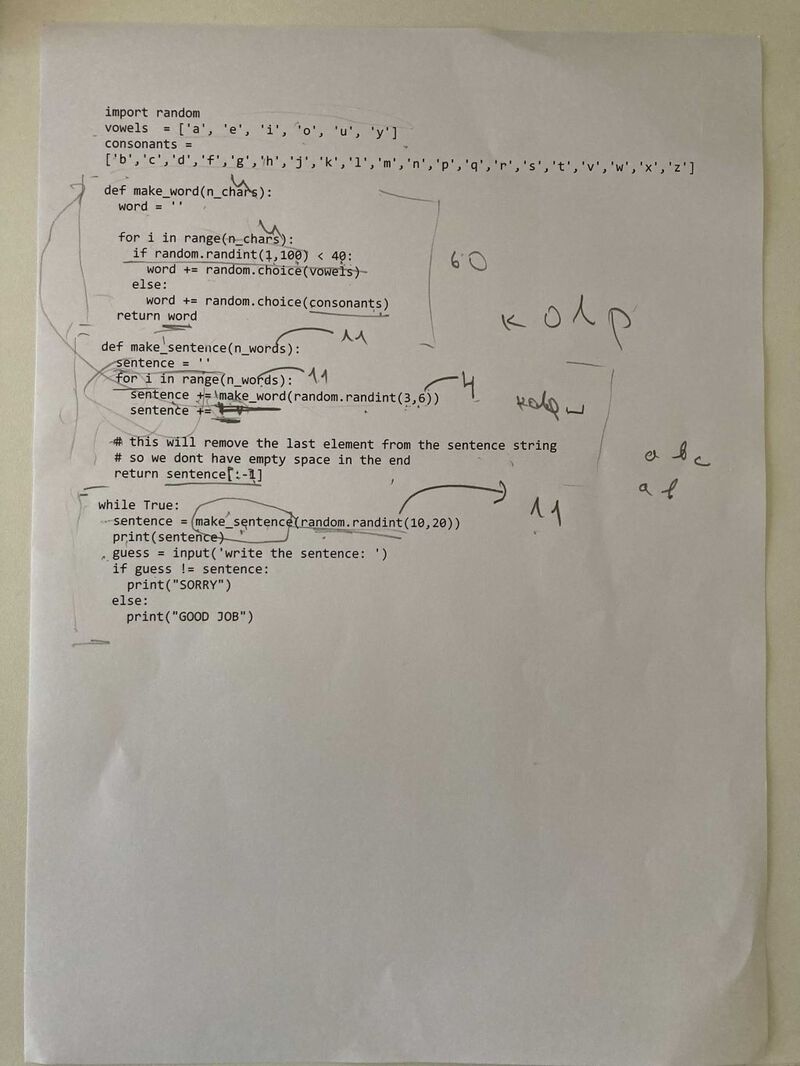 import random
vowels = ['a', 'e', 'i', 'o', 'u', 'y']
consonants =
['b','c','d','f','g','h','j','k','l','m','n','p','q','r','s','t','v','w','x','z']
def make_word(n_chars):
word = ''
for i in range(n_chars):
if random.randint(1,100) < 40:
word += random.choice(vowels)
else:
word += random.choice(consonants)
return word
60
kolp
def make_sentence(n_words):
11
sentence = ''
for i in range(n_words):
11
sentence += make_word(random.randint(3,6))
4
sentence +=
kolp
# this will remove the last element from the sentence string
# so we dont have empty space in the end
return sentence[:-1]
abc
while True:
sentence = make_sentence(random.randint(10,20))
11
print(sentence)
guess = input('write the sentence: ')
if guess != sentence:
print("SORRY")
else:
print("GOOD JOB")